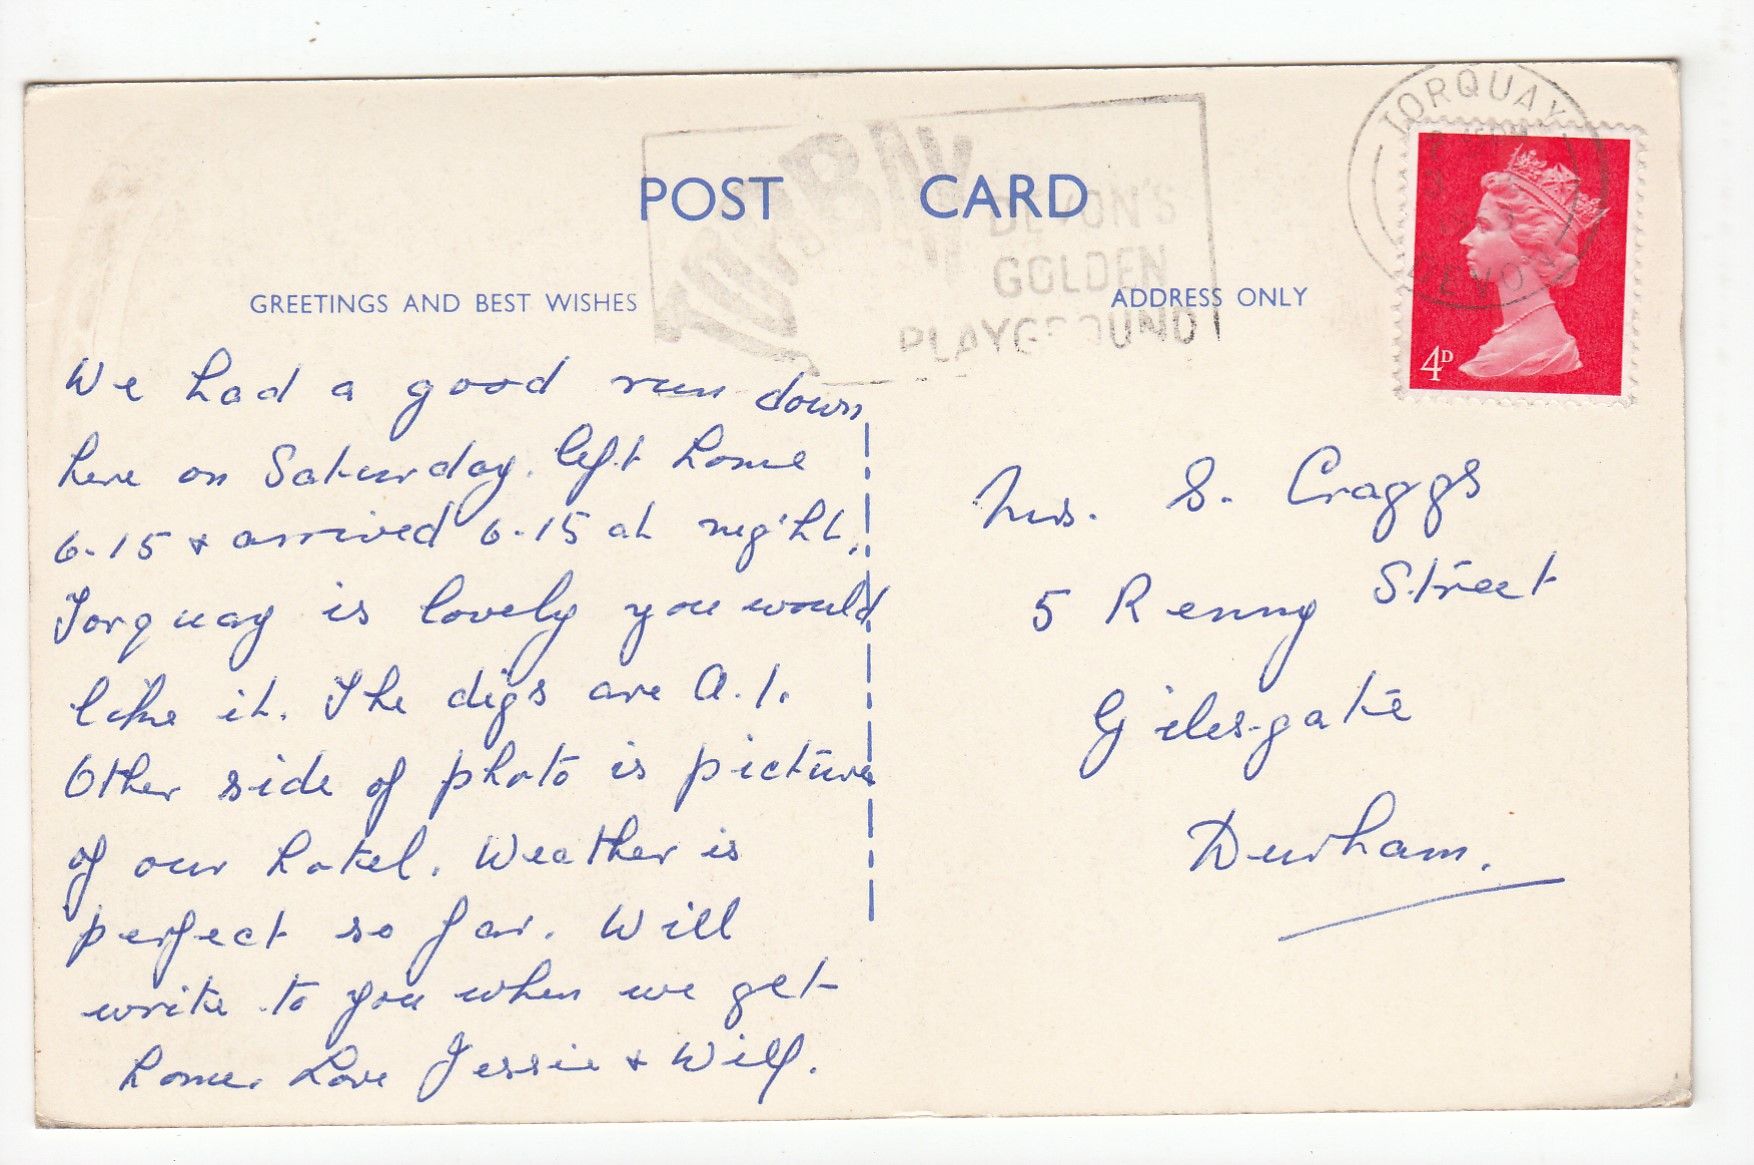 TORQUAY
DEVON
TORBAY
DEVON'S
GOLDEN
PLAYGROUND
POST CARD
GREETINGS AND BEST WISHES
ADDRESS ONLY
4D
We had a good run down
here on Saturday. left home
6-15 + arrived 6-15 at night.
Torquay is lovely you would
like it. The digs are A.1.
Other side of photo is picture
of our hotel. Weather is
perfect so far. Will
write to you when we get
home. Love Jessie + Wilf.
Mrs. S. Craggs
5 Renny Street
Gilesgate
Durham.